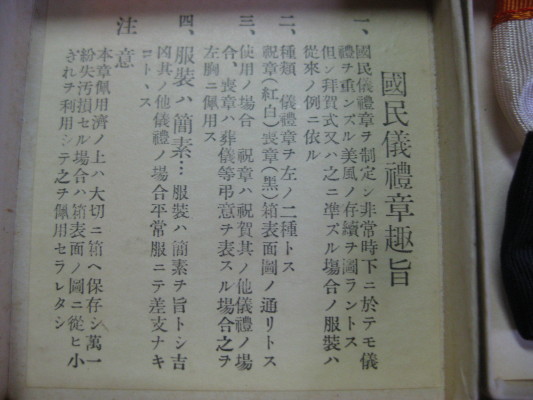 國民儀禮章趣旨
一、國民儀禮章ヲ制定シ非常時下ニ於テモ儀
禮ヲ重ンズル美風ノ存續ヲ圖ラントス
但シ拜賀式又ハ之ニ準ズル場合ノ服裝ハ
從來ノ例ニ依ル
二、種類 儀禮章ヲ左ノ二種トス
祝章(紅白)喪章(黑)箱表面圖ノ通リトス
三、使用ノ場合 祝章ハ祝賀其ノ他儀禮ノ場
合、喪章ハ葬儀等弔意ヲ表スル場合之ヲ
左胸ニ佩用ス
四、服裝ハ簡素… 服裝ハ簡素ヲ旨トシ吉
凶其ノ他儀禮ノ場合平常服ニテ差支ナキ
コトヽス
注意
本章佩用濟ノ上ハ大切ニ箱ヘ保存シ萬一
紛失汚損セル場合ハ箱表面ノ圖ニ從ヒ小
ぎれヲ利用シテ之ヲ佩用セラレタシ